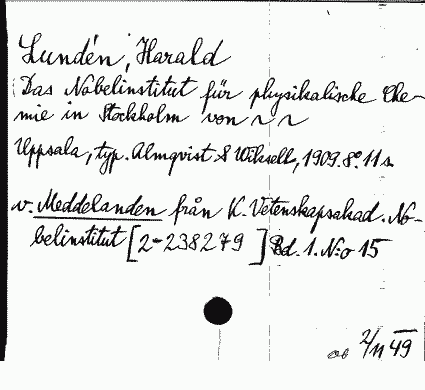 Lundén, Harald
Das Nobelinstitut für physikalische Che-
mie in Stockholm von ~ ~
Uppsala, typ. Almqvist & Wiksell, 1909. 8:o. 11 s.
v. Meddelanden från K. Vetenskapsakad. No-
belinstitut [2-238279] Bd. 1. N:o 15
2/11 49